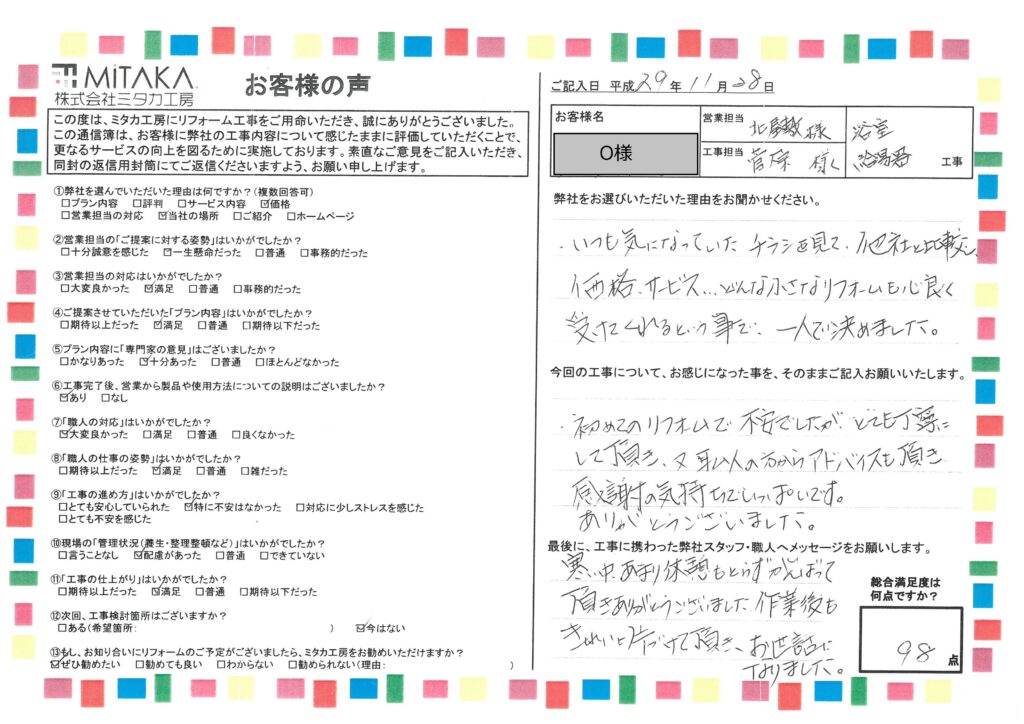 MiTAKA
株式会社ミタカ工房
お客様の声
この度は、ミタカ工房にリフォーム工事をご用命いただき、誠にありがとうございました。
この通信簿は、お客様に弊社の工事内容について感じたままに評価していただくことで、
更なるサービスの向上を図るために実施しております。素直なご意見をご記入いただき、
同封の返信用封筒にてご返信くださいますよう、お願い申し上げます。
①弊社を選んでいただいた理由は何ですか？(複数回答可)
□プラン内容 □評判 □サービス内容 ☑価格
□営業担当の対応 ☑当社の場所 □ご紹介 □ホームページ
②営業担当の「ご提案に対する姿勢」はいかがでしたか？
□十分誠意を感じた ☑一生懸命だった □普通 □事務的だった
③営業担当の対応はいかがでしたか？
□大変良かった ☑満足 □普通 □事務的だった
④ご提案させていただいた「プラン内容」はいかがでしたか？
□期待以上だった ☑満足 □普通 □期待以下だった
⑤プラン内容に「専門家の意見」はございましたか？
□かなりあった ☑十分あった □普通 □ほとんどなかった
⑥工事完了後、営業から製品や使用方法についての説明はございましたか？
☑あり □なし
⑦「職人の対応」はいかがでしたか？
☑大変良かった □満足 □普通 □良くなかった
⑧「職人の仕事の姿勢」はいかがでしたか？
□期待以上だった ☑満足 □普通 □雑だった
⑨「工事の進め方」はいかがでしたか？
□とても安心していられた ☑特に不安はなかった □対応に少しストレスを感じた
□とても不安を感じた
⑩現場の「管理状況(養生・整理整頓など)」はいかがでしたか？
□言うことなし ☑配慮があった □普通 □できていない
⑪「工事の仕上がり」はいかがでしたか？
□期待以上だった ☑満足 □普通 □期待以下だった
⑫次回、工事検討箇所はございますか？
□ある(希望箇所: ) ☑今はない
⑬もし、お知り合いにリフォームのご予定がございましたら、ミタカ工房をお勧めいただけますか？
☑ぜひ勧めたい □勧めても良い □わからない □勧められない(理由: )
ご記入日 平成29年11月28日
お客様名
O様
営業担当 北 様
工事担当 菅原 様
浴室
給湯器 工事
弊社をお選びいただいた理由をお聞かせください。
・いつも気になっていたチラシを見て、他社と比較し、
価格、サービス…どんな小さなリフォームも心良く
受けてくれるという事で、一人で決めました。
今回の工事について、お感じになった事を、そのままご記入お願いいたします。
・初めてのリフォームで不安でしたが、とても丁寧に
して頂き、又職人の方からアドバイスも頂き
感謝の気持ちでいっぱいです。
ありがとうございました。
最後に、工事に携わった弊社スタッフ・職人へメッセージをお願いします。
寒い中、あまり休憩もとらずがんばって
頂きありがとうございました。作業後も
きれいに片づけて頂き、お世話に
なりました。
総合満足度は
何点ですか？
98点